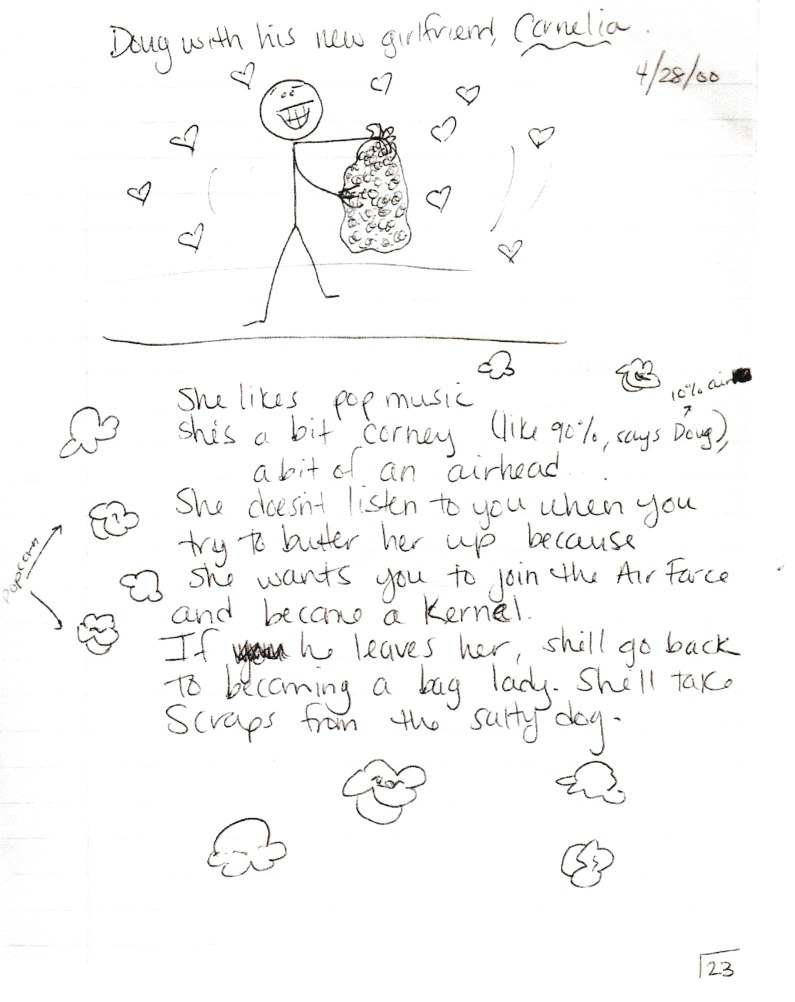 Doug with his new girlfriend, Cornelia.
4/28/00
She likes pop music
10% air
She's a bit corney (like 90%, says Doug),
a bit of an airhead...
She doesn't listen to you when you
try to butter her up because
popcorn
She wants you to join the Air Force
and become a Kernel.
If he leaves her, she'll go back
to becoming a bag lady. She'll take
Scraps from the salty dog.
23